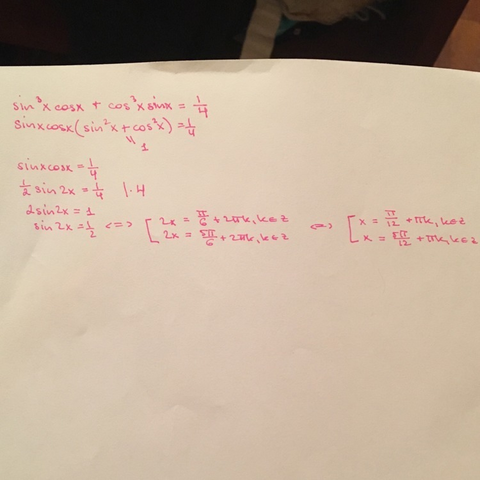 sin³x cosx + cos³x sinx = 1/4
sinx cosx (sin²x + cos²x) = 1/4
"
1
sinx cosx = 1/4
1/2 sin 2x = 1/4 | · 4
2 sin 2x = 1
sin 2x = 1/2 <=> [ 2x = π/6 + 2πk, k∈z <=> [ x = π/12 + πk, k∈z
2x = 5π/6 + 2πk, k∈z x = 5π/12 + πk, k∈z